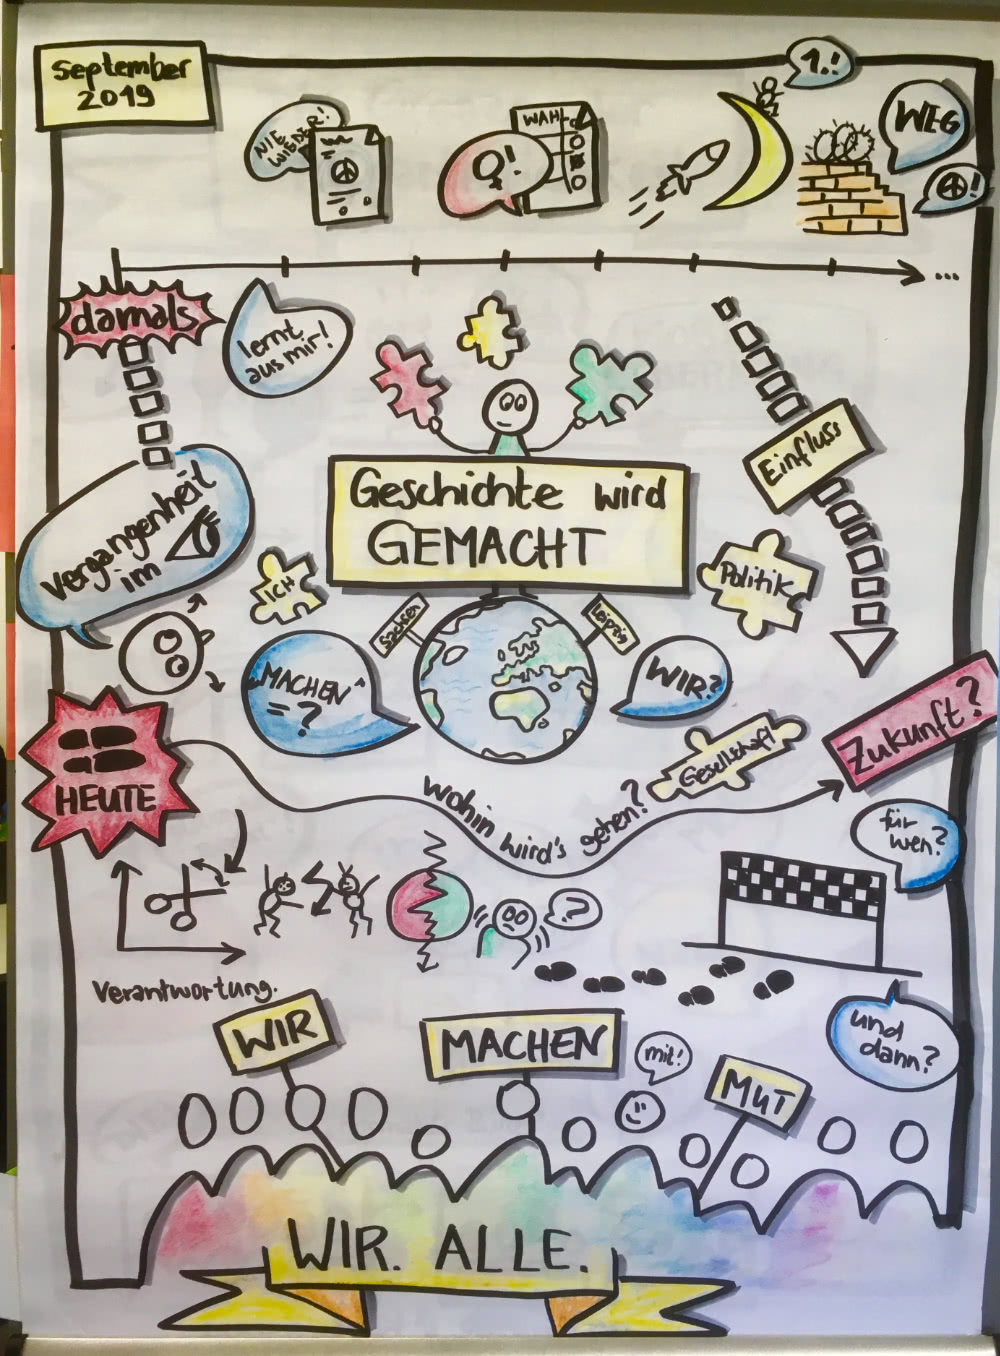 September
2019
NIE
WIEDER!
WAHL
!
1.!
WEG
!
...
damals
lernt
aus mir!
Einfluss
Geschichte wird
GEMACHT
Vergangenheit
im
ICH
Politik
Sachsen
Leipzig
„MACHEN“
= ?
WIR?
HEUTE
Gesellschaft
Zukunft?
wohin wird's gehen?
für
wen?
?
Verantwortung.
WIR
MACHEN
mit!
MUT
und
dann?
WIR. ALLE.